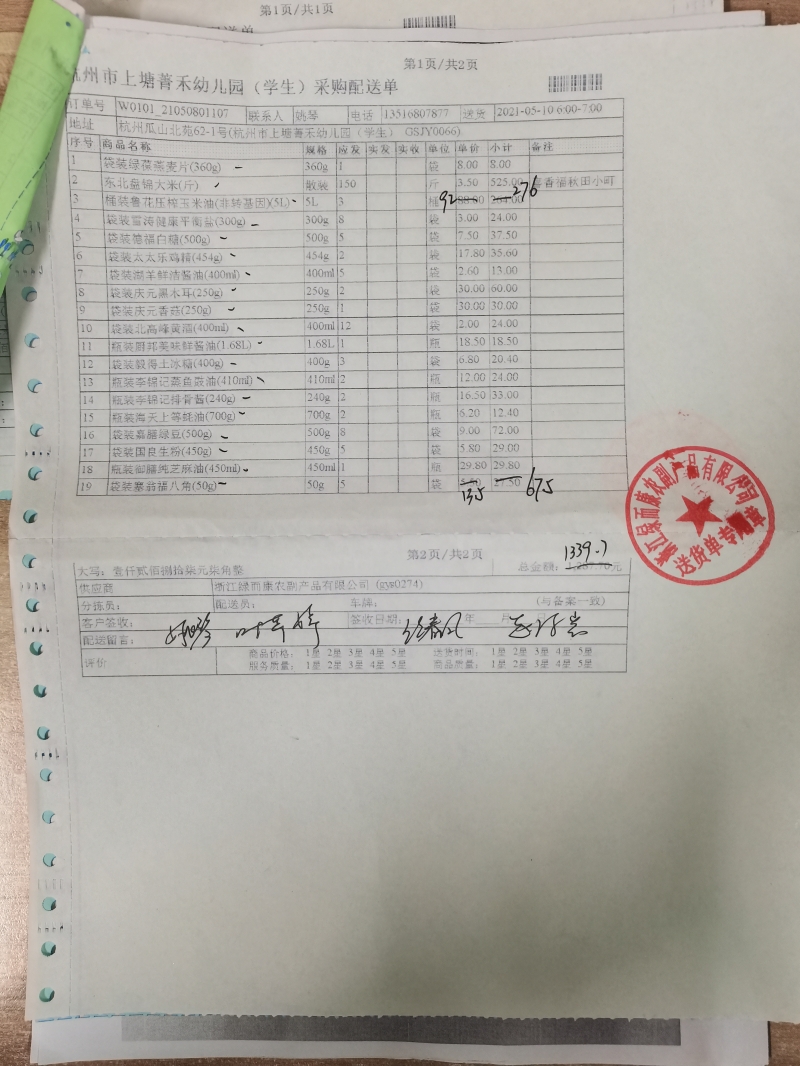 第1页/共1页
第1页/共2页
杭州市上塘菁禾幼儿园（学生）采购配送单
订单号 W0101_21050801107 联系人 姚琴 电话 13516807877 送货 2021-05-10 6:00-7:00
地址 杭州瓜山北苑62-1号(杭州市上塘菁禾幼儿园（学生） GSJY0066)
序号 商品名称 规格 应发 实发 实收 单位 单价 小计 备注
1 袋装绿葆燕麦片(360g) 360g 1 袋 8.00 8.00
2 东北盘锦大米(斤) 散装 150 斤 3.50 525.00 喜香福秋田小町
3 桶装鲁花压榨玉米油(非转基因)(5L) 5L 3 桶 92 88.00 264.00 276
4 袋装雪涛健康平衡盐(300g) 300g 8 袋 3.00 24.00
5 袋装德福白糖(500g) 500g 5 袋 7.50 37.50
6 袋装太太乐鸡精(454g) 454g 2 袋 17.80 35.60
7 袋装湖羊鲜洁酱油(400ml) 400ml 5 袋 2.60 13.00
8 袋装庆元黑木耳(250g) 250g 2 袋 30.00 60.00
9 袋装庆元香菇(250g) 250g 1 袋 30.00 30.00
10 袋装北高峰黄酒(400ml) 400ml 12 袋 2.00 24.00
11 瓶装厨邦美味鲜酱油(1.68L) 1.68L 1 瓶 18.50 18.50
12 袋装毅得土冰糖(400g) 400g 3 袋 6.80 20.40
13 瓶装李锦记蒸鱼豉油(410ml) 410ml 2 瓶 12.00 24.00
14 瓶装李锦记排骨酱(240g) 240g 2 瓶 16.50 33.00
15 瓶装海天上等蚝油(700g) 700g 2 瓶 6.20 12.40
16 袋装嘉膳绿豆(500g) 500g 8 袋 9.00 72.00
17 袋装国良生粉(450g) 450g 5 袋 5.80 29.00
18 瓶装御膳纯芝麻油(450ml) 450ml 1 瓶 29.80 29.80
19 袋装塞翁福八角(50g) 50g 5 袋 5.50 27.50
13.5 67.5
第2页/共2页
大写：壹仟贰佰捌拾柒元柒角整 总金额： 1,287.70元 1339.7
供应商 浙江绿而康农副产品有限公司 (gys0274)
分拣员： 配送员： 车牌： (与备案一致)
客户签收： 签收日期： 年 月
配送留言：
评价 商品价格： 1星 2星 3星 4星 5星 送货时间： 1星 2星 3星 4星 5星
服务质量： 1星 2星 3星 4星 5星 商品质量： 1星 2星 3星 4星 5星
浙江绿而康农副产品有限公司
送货单专用章